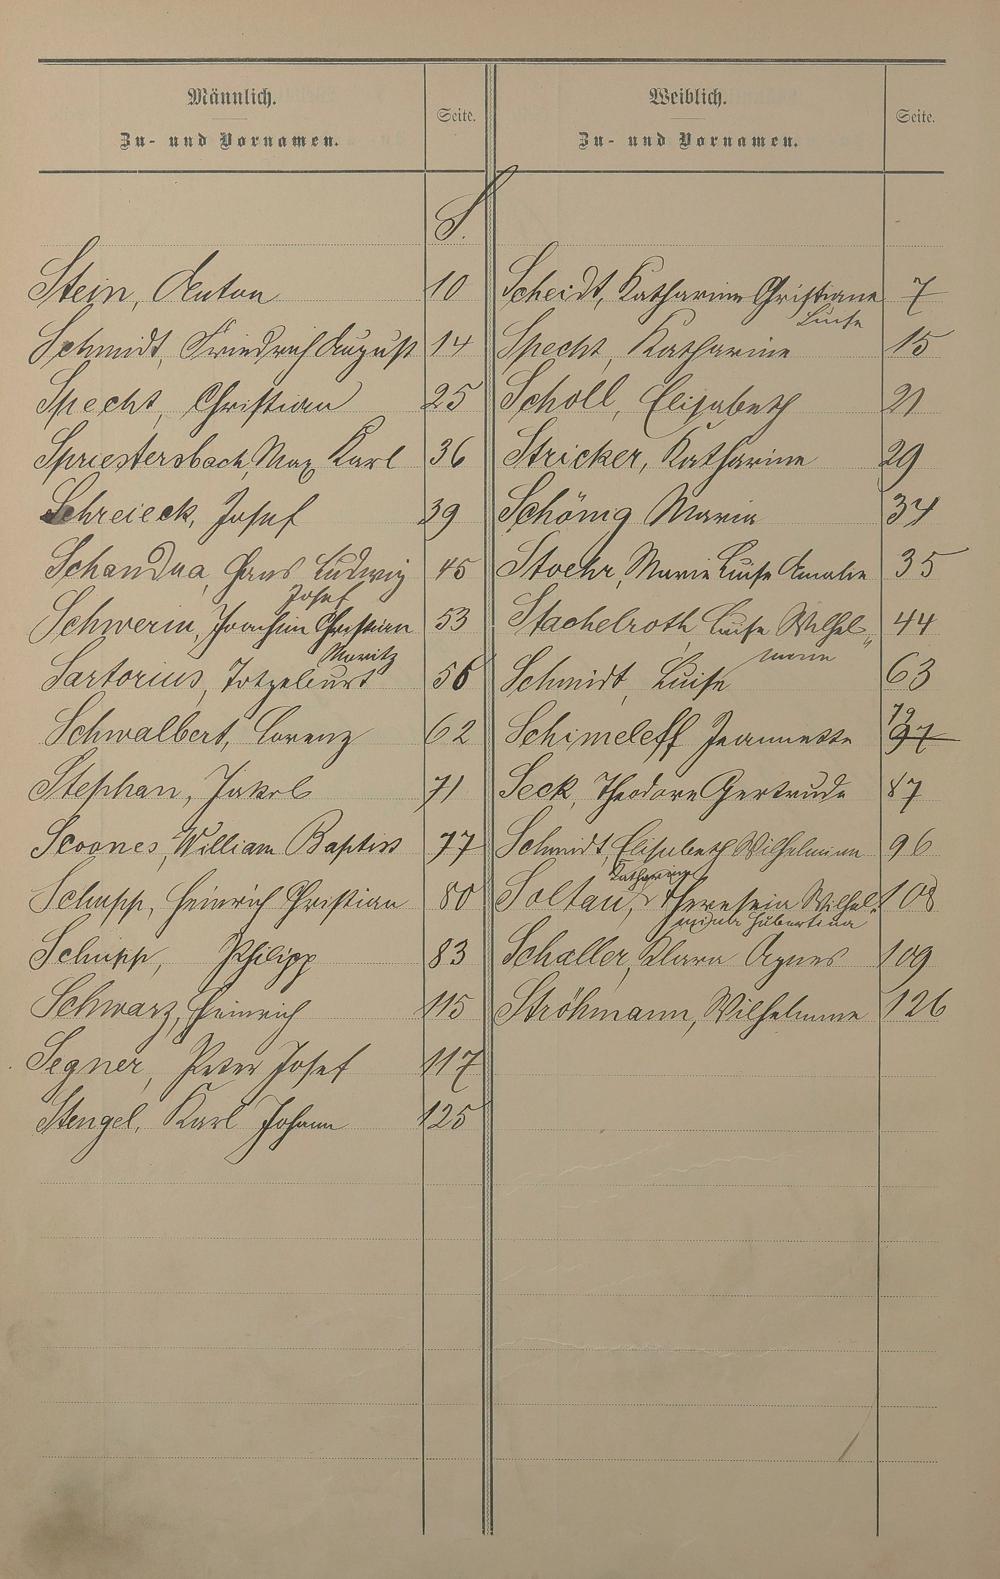 Männlich.
Zu- und Vornamen.
Seite.
Weiblich.
Zu- und Vornamen.
Seite.
S.
Stein, Anton 10
Schmidt, Friedrich August 14
Specht, Christian 25
Spriestersbach, Max Karl 36
Schreieck, Josef 39
Schandua, Hans Ludwig 45
Josef
Schwerin, Joachim Christian 53
Moritz
Sartorius, Totgeburt 56
Schwalbert, Lorenz 62
Stephan, Jakob 71
Scoones, William Baptist 77
Schupp, Heinrich Christian 80
Schupp, Philipp 83
Schwarz, Heinrich 115
Segner, Peter Josef 117
Stengel, Karl Johann 125
Scheidt, Katharine Christiane 7
Luise
Specht, Katharine 15
Scholl, Elisabeth 21
Stricker, Katharine 29
Schönig Maria 34
Stoehr, Marie Luise Amalie 35
Stachelroth, Luise Wilhel„ 44
mine
Schmidt, Luise 63
79
Schimeleff Jeannette 97
Seck, Theodore Gertrude 87
Schmidt, Elisabeth Wilhelmine 96
Katharine
Soltau, Theresia Wilhel- 108
mine Hubertina
Schaller, Klara Agnes 109
Ströhmann, Wilhelmine 126